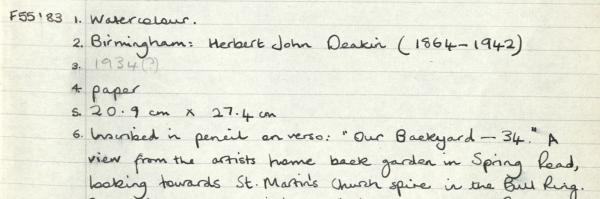 F55'83 1. Watercolour.
2. Birmingham: Herbert John Deakin (1864-1942)
3. 1934(?)
4. paper
5. 20.9 cm x 27.4 cm
6. Inscribed in pencil on verso: "Our Backyard - 34." A
view from the artists home back garden in Spring Road,
looking towards St. Martin's Church spire in the Bull Ring.